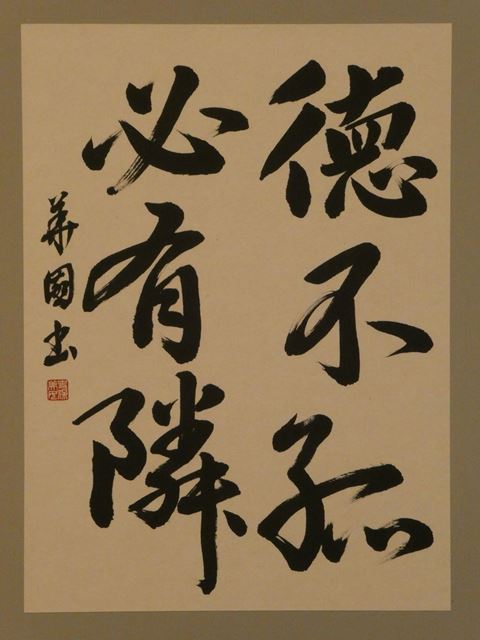 德不孤
必有隣
華國書